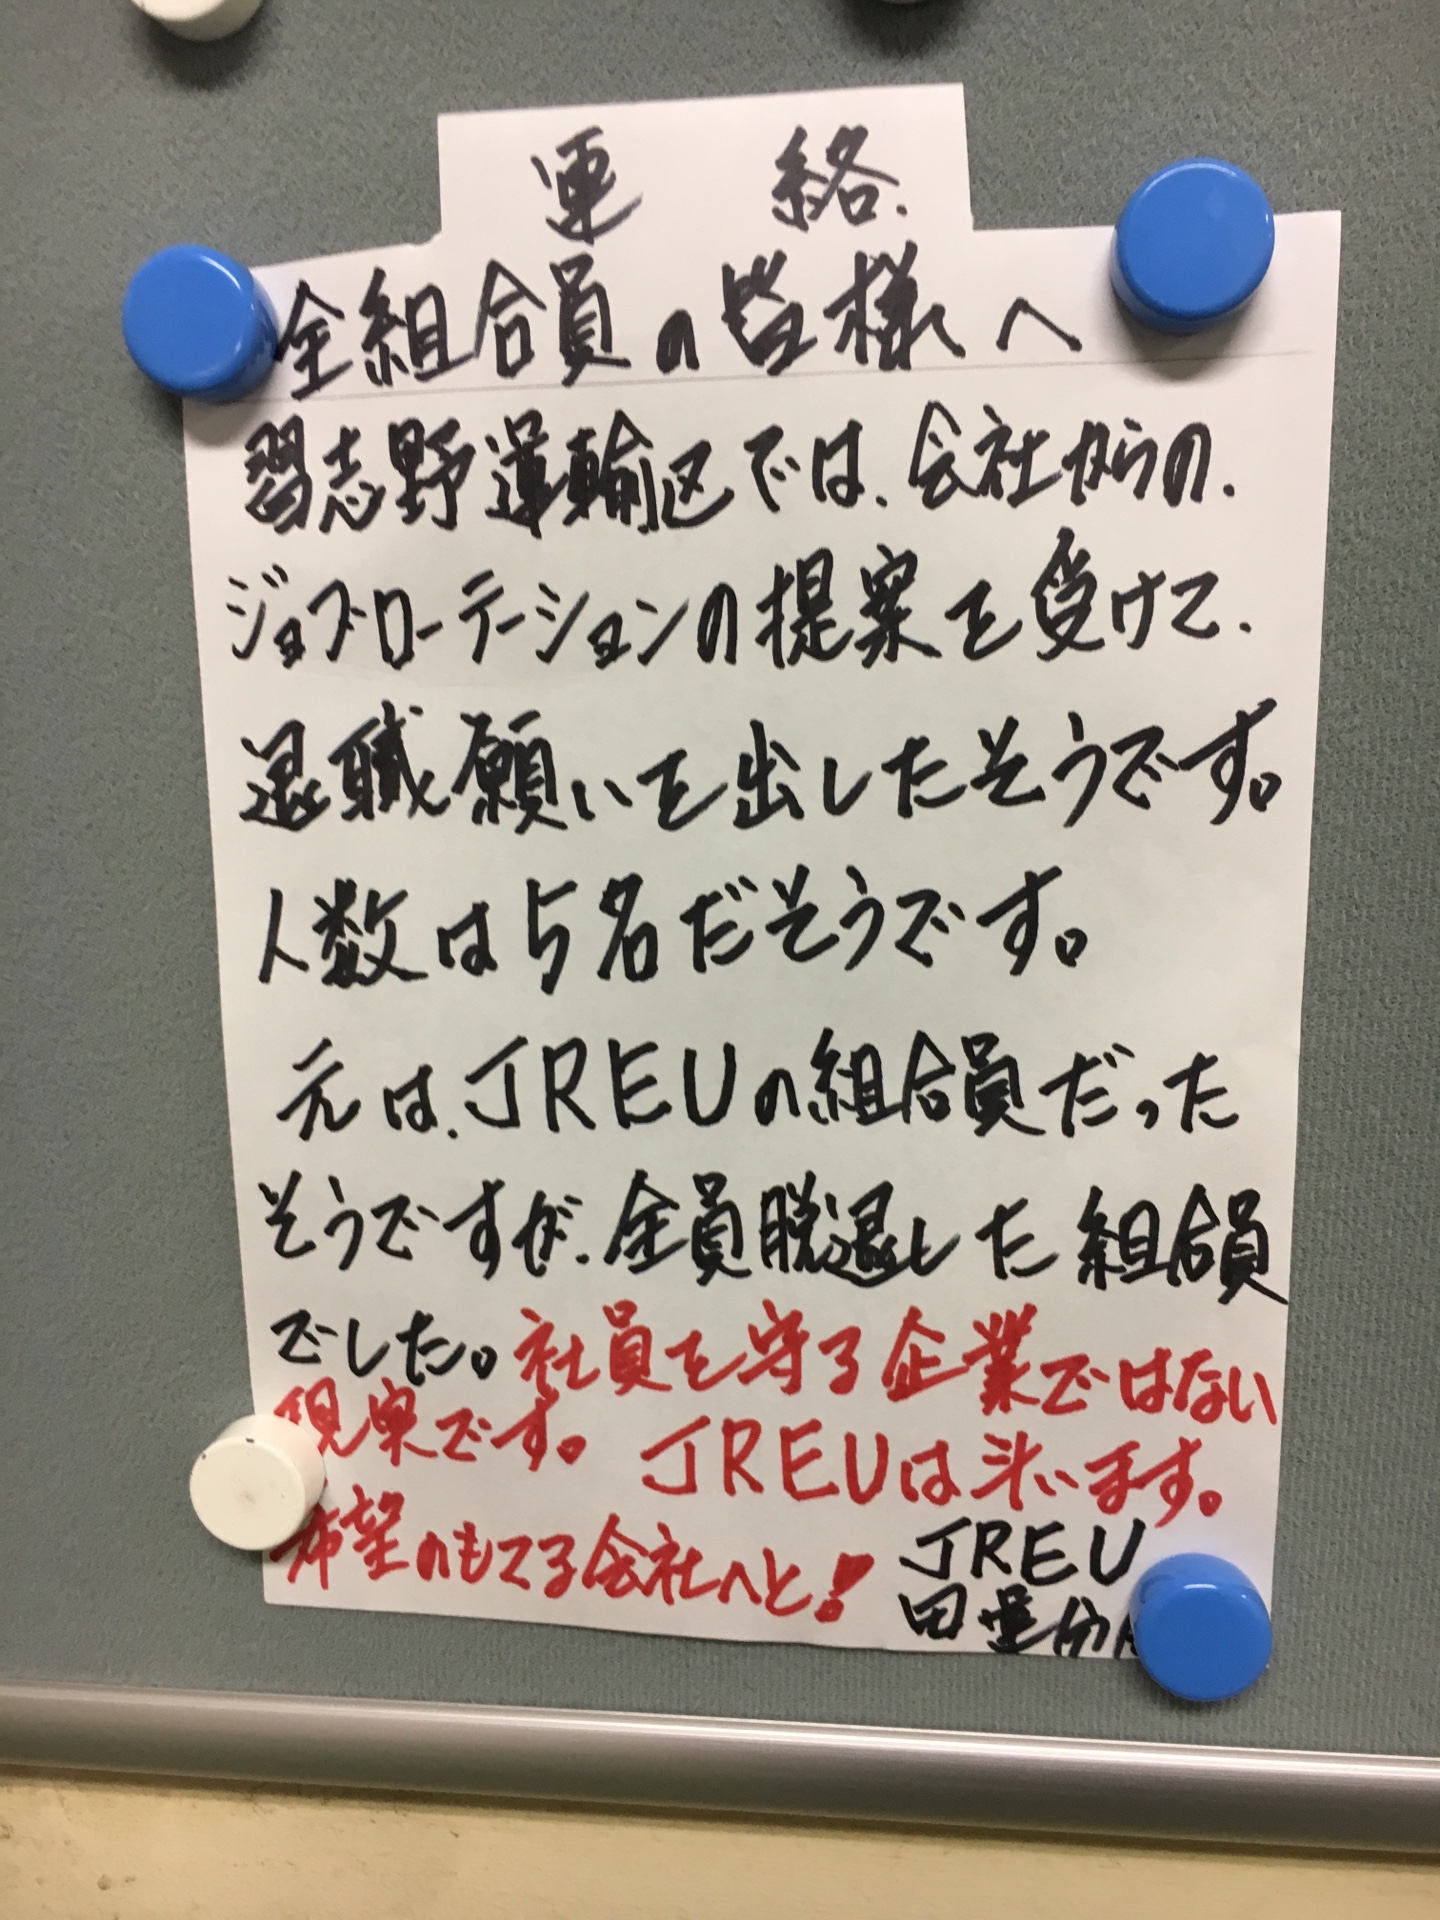 連 絡.
全組合員の皆様へ
習志野運輸区では、会社からの、
ジョブローテーションの提案を受けて、
退職願いを出したそうです。
人数は5名だそうです。
元は、JREUの組合員だった
そうですが、全員脱退した組合員
でした。社員を守る企業ではない
現実です。JREUは斗います。
希望のもてる会社へと!
JREU
田